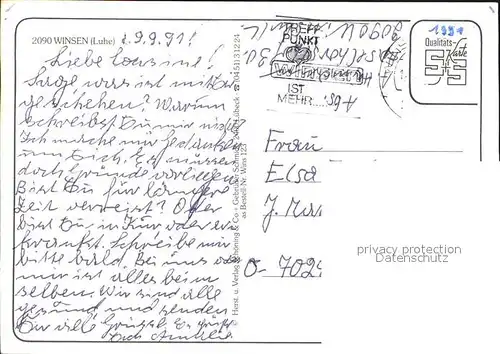 2090 WINSEN (Luhe) d. 9.9.91!
Liebe Cousine!
Sage was ist mit Dir
geschehen? Warum
schreibst Du mir nicht?
Ich mache mir Gedanken
um Dich. Es müssen
doch Gründe vorliegen.
Bist Du für längere
Zeit verreist? Oder
bist Du in Kur oder er-
krankt. Schreibe mir
bitte bald. Bei uns
mir ist alles beim
selben. Wir sind alle
gesund und senden
Dir viele Grüsse. Es grüßt
Dich
© Herst. u. Verlag Schöning & Co + Gebrüder Schmidt, Lübeck ☎ (0451) 31224
Bestell Nr. Wins 123
TREFF
PUNKT
WINSEN
IST
MEHR...
1991
Qualitäts-
Karte
Frau
Elsa
J.
O-702
privacy protection
Datenschutz